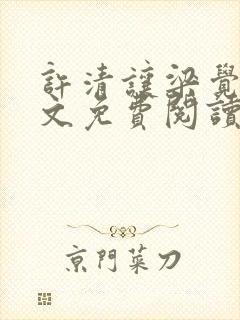 許清誼梁覺
文免費閱讀
京門菜刀